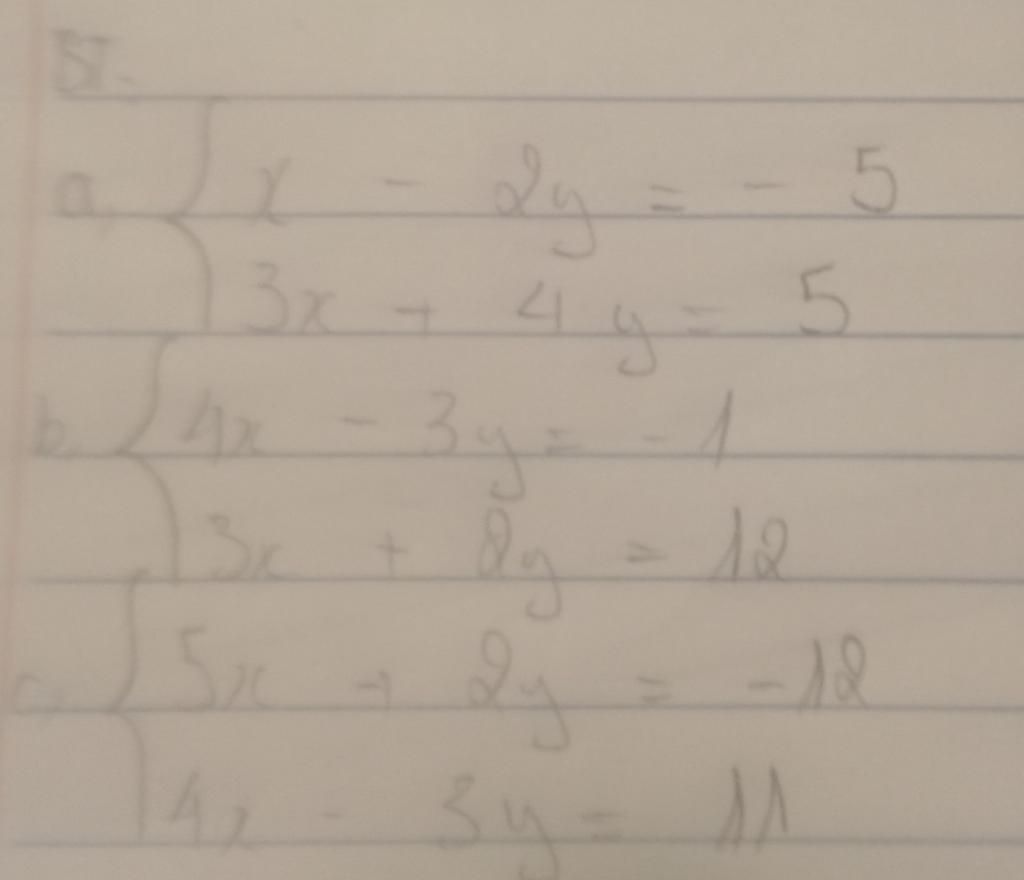 a, x - 2y = - 5
3x + 4y = 5
b, 4x - 3y = - 1
3x + 2y = 12
c, 5x + 2y = -12
4x - 3y = 11